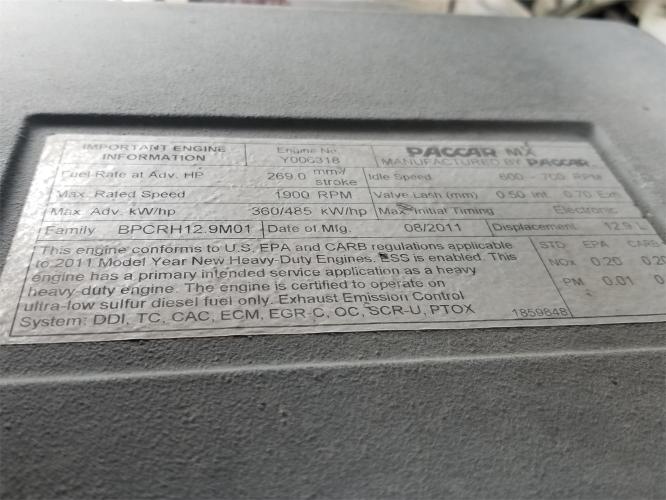 IMPORTANT ENGINE INFORMATION
Engine No. Y006318
PACCAR MX
MANUFACTURED BY PACCAR
Fuel Rate at Adv. HP 269.0 mm³/stroke Idle Speed 600 - 700 RPM
Max. Rated Speed 1900 RPM Valve Lash (mm) 0.50 Int. 0.70 Exh
Max. Adv. kW/hp 360/485 kW/hp Max Initial Timing Electronic
Family BPCRH12.9M01 Date of Mfg. 08/2011 Displacement 12.9 L
This engine conforms to U.S. EPA and CARB regulations applicable
to 2011 Model Year New Heavy-Duty Engines. ESS is enabled. This
engine has a primary intended service application as a heavy
heavy-duty engine. The engine is certified to operate on
ultra-low sulfur diesel fuel only. Exhaust Emission Control
System: DDI, TC, CAC, ECM, EGR-C, OC, SCR-U, PTOX
STD EPA CARB
NOx 0.20 0.20
PM 0.01
1859848